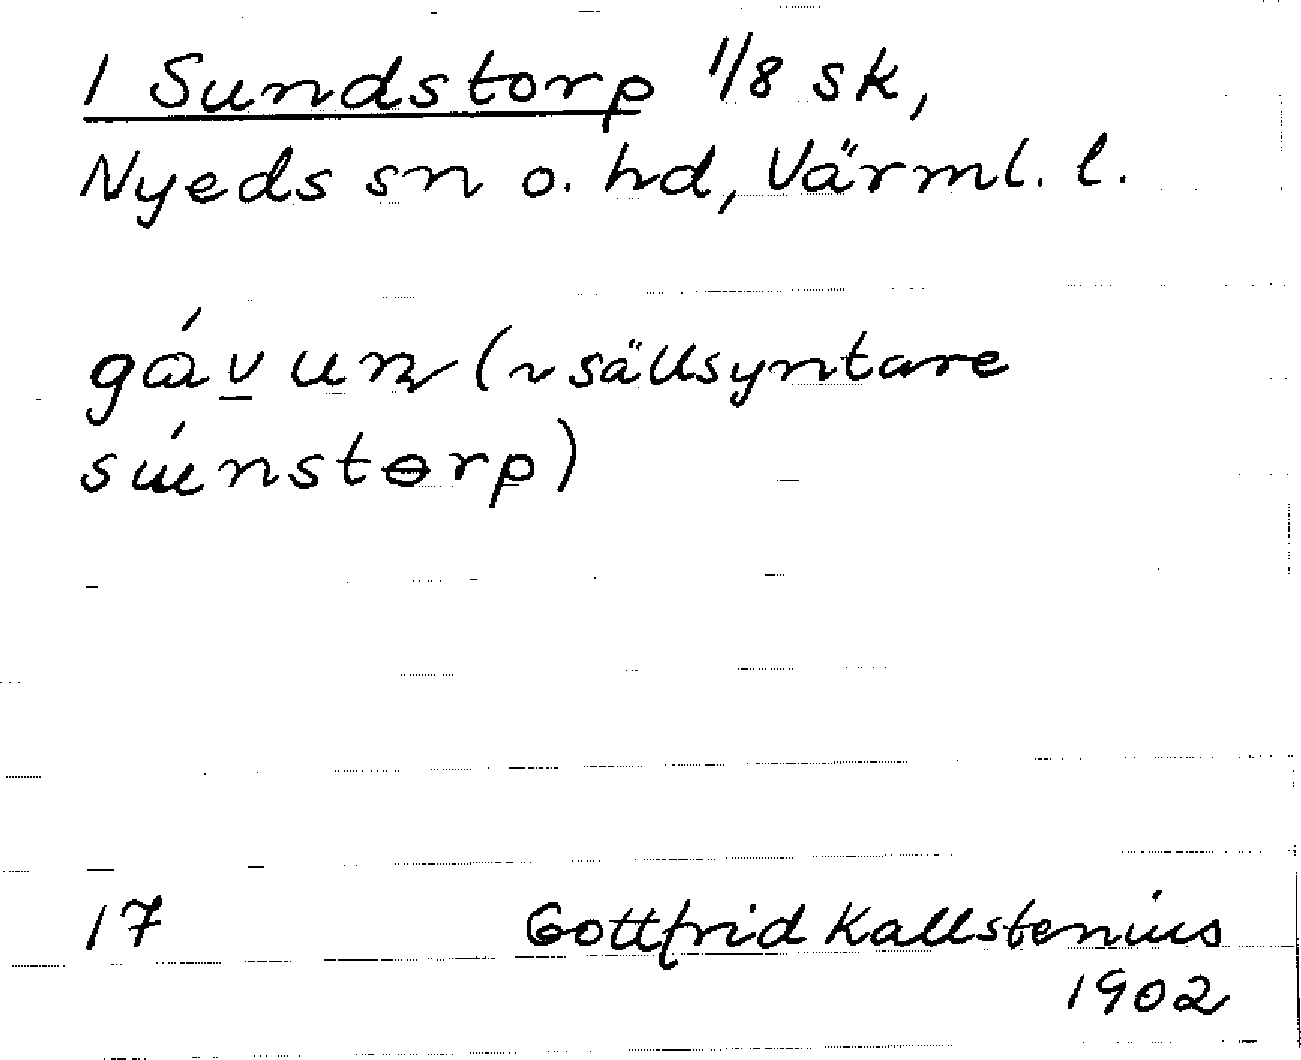 1 Sundstorp 1/8 sk,
Nyeds sn o. hd, Värml. l.
gávun (~ sällsyntare
súnstɵrp)
17 Gottfrid Kallstenius
1902